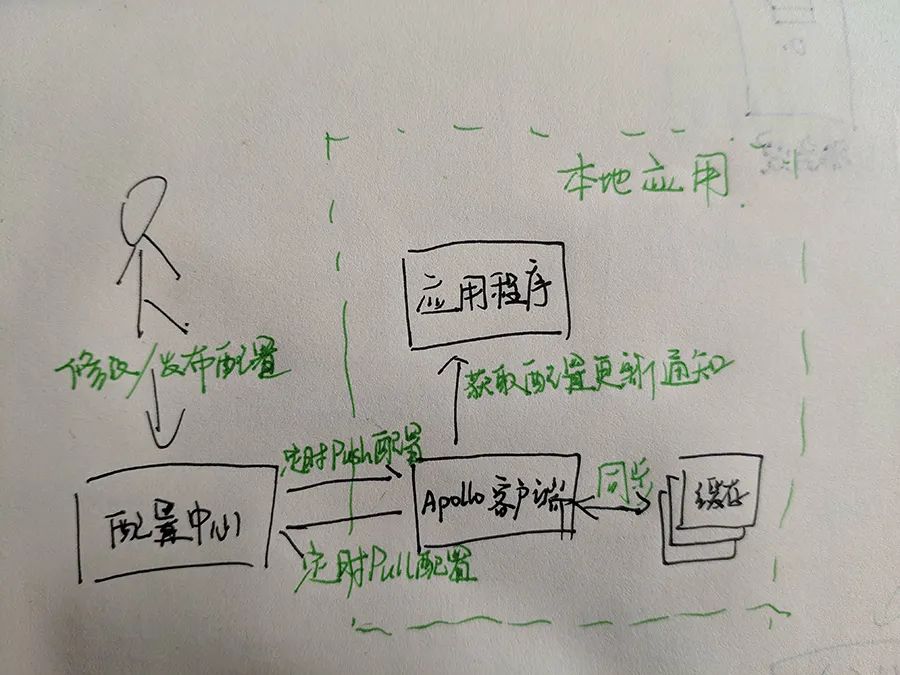 本地应用
应用程序
修改/发布配置
获取配置更新通知
定时Push配置
配置中心
Apollo客户端
同步
缓存
定时Pull配置